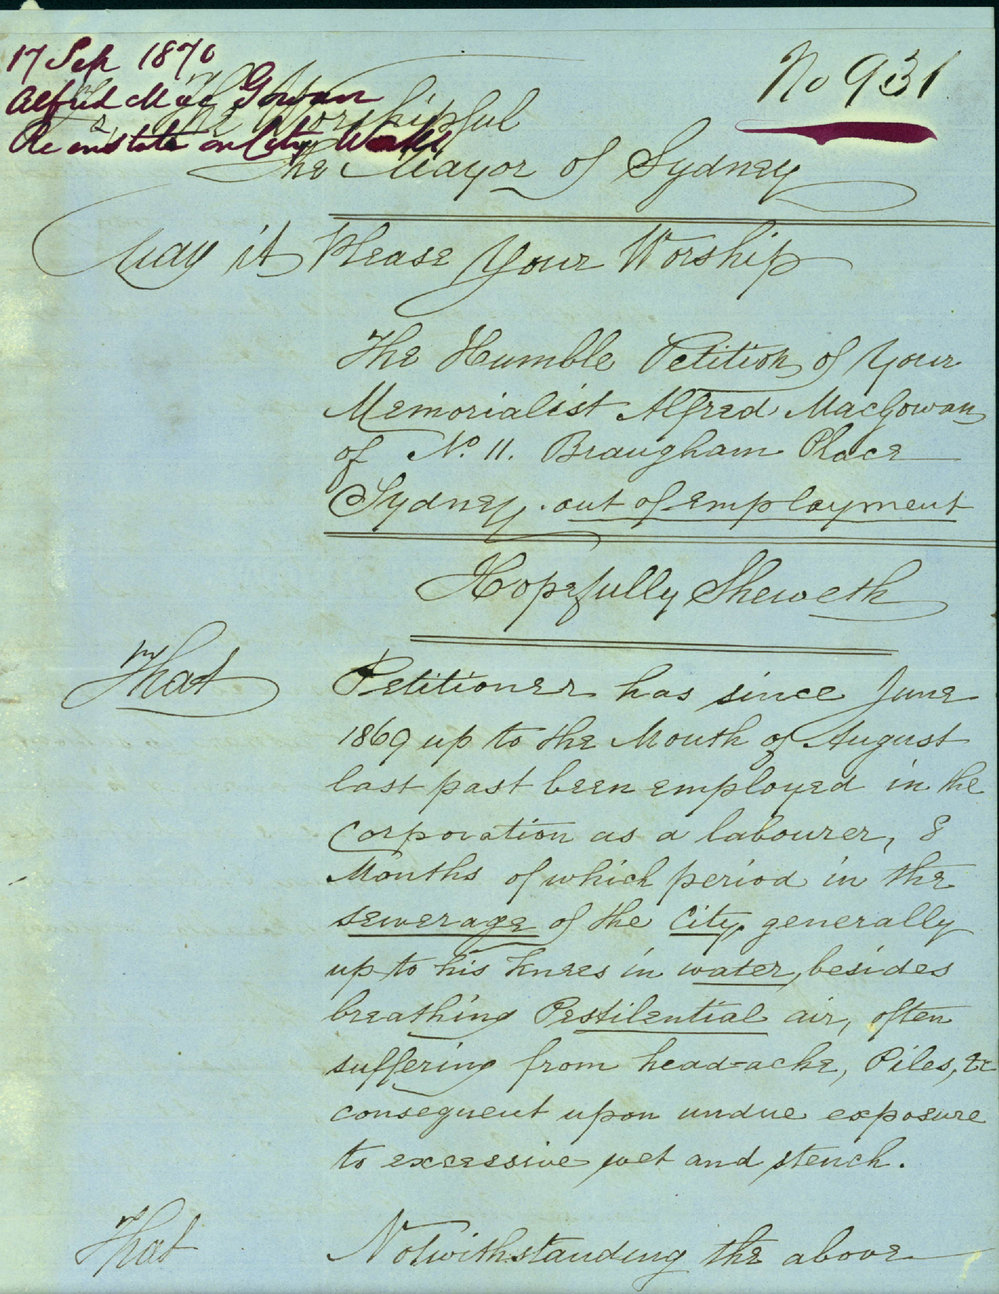 17 Sep 1870
Alfred Mac Gowan
Re instate on City Works
No 931
To The Worshipful
The Mayor of Sydney
May it Please Your Worship
The Humble Petition of Your
Memorialist Alfred MacGowan
of No. 11. Braugham Place
Sydney. out of employment
Hopefully Sheweth
That Petitioner has since June
1869 up to the Month of August
last past been employed in the
Corporation as a labourer, 8
Months of which period in the
sewerage of the City, generally
up to his knees in water, besides
breathing Pestilential air, often
suffering from head-ache, Piles, &c
consequent upon undue exposure
to excessive wet and stench.
That Notwithstanding the above